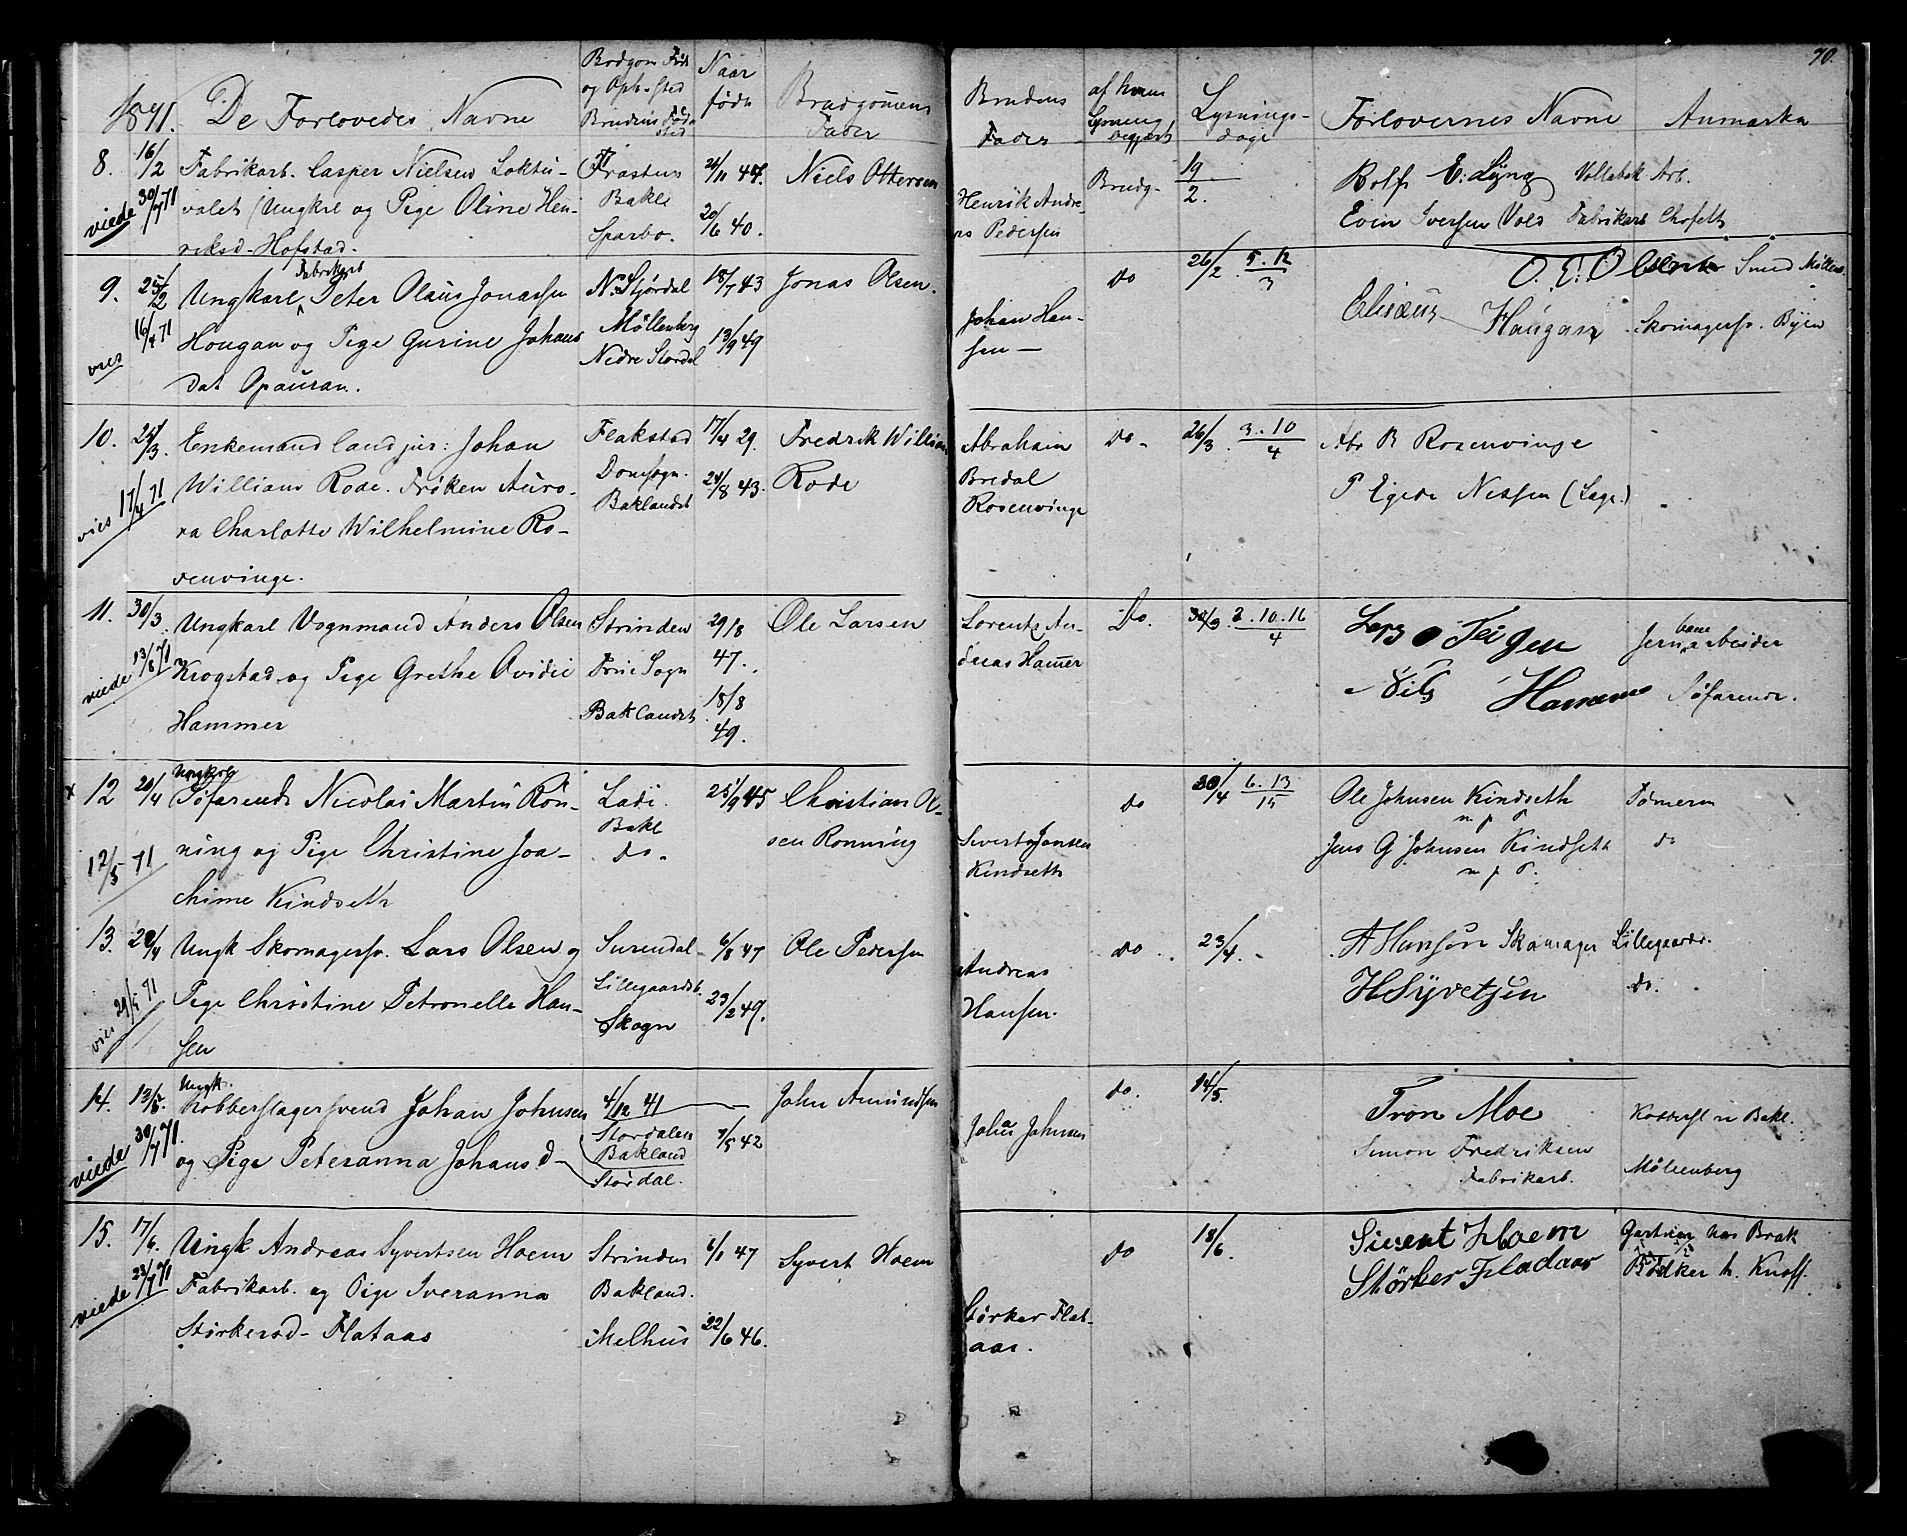 70.
1871.
De Forlovedes Navne
Brudgom Føde
og Oph.sted
Brudens Føde
sted
Naar
født
Brudgomens
Fader
Brudens
Fader
af hvem
Lysning
begjært
Lysnings-
dage
Forlovernes Navne
Anmærkn
8. 16/2 Fabrikarb. Casper Nielsen Loktu-
viede 30/7 71
valet (Ungkrl og Pige Oline Hen-
riksd. Hofstad.
Frosten
Bakl
Sparbo.
21/11 44.
20/6 40.
Niels Ottersen
Henrik Andre-
as Pedersen
Brudg.
19/2.
Rolf E. Lyng Vollabak Arb.
Even Iversen Vold Fabrikarb
9. 25/2 Ungkarl Fabrikarb Peter Olaus Jonassen
16/4 71
vies
Hougan og Pige Gurine Johans
dat Opauran.
N. Stjørdal
Møllenberg
Nedre Stordal
18/7 43
13/9 49
Jonas Olsen.
Johan Han-
sen
do
26/2. 5. 12/3
O. E. Olsen Smed Møllen.
Elisæus Haugan Skomagersv. Byen
10. 25/3. Enkemand Cand jur: Johan
vies 17/4 71
William Rode. Frøken Auro-
ra Charlotte Wilhelmine Ro-
senvinge.
Flakstad
Domsogn.
Baklandet
17/4 29.
28/8 43.
Fredrik William
Rode
Abraham
Bredal
Rosenvinge
Do.
26/3. 3. 10/4
Abr B Rosenvinge
P Egede Nissen (Læge.)
11. 30/3. Ungkarl Vognmand Anders Olsen
viede 13/8 71
Krogstad og Pige Grethe Ovidie
Hammer
Strinden
Frue Sogn
Baklandet
29/8
47.
18/8
49.
Ole Larsen
Lorentz An-
dreas Hammer
Do.
30/3 2. 10. 16/4
Lars O Teigen Jernbanearbeider
Nils Hammer Søfarende.
x 12 20/4 Ungkarl
Søfarende Nicolai Martin Røn-
12/5 71
ning og Pige Christine Joa-
chime Kindseth
Lade.
Bakl
do.
25/9 45
Christian Ol-
sen Rønning
Sivert Jonsen
Kindseth
do
30/4 6. 13/15
Ole Johnsen Kindseth Tømerm
m p P
Jens G Johnsen Kindseth do
m p P.
13. 20/4 Ungk Skomagersv. Lars Olsen og
vies 29/5 71
Pige Christine Petronelle Han-
sen
Surendal
Lillegaardsb.
Skogn
6/8 47
23/2 49.
Ole Pedersen
Andreas
Hansen.
do
23/4.
A Hansen Skomager Lillegaardsb.
H Syvetsen do.
14. 13/5. Ungk.
Kobberslagersvend Johan Johnsen
viede 30/7 71.
og Pige Peteranna Johansd
4/12 41
Stordalen
Bakland
Stordal.
7/5 42
John Amundsen
Johan Johnsen
do.
14/5.
Tron Moe Kobbersl Bakl.
Simon Fredriksen
Fabrikarb. Møllenberg
15. 17/6. Ungk Andreas Syvertsen Hoem
viede 23/7 71
Fabrikarb. og Pige Iveranna
Størkersd. Flataas
Strinden
Bakland.
Melhus
6/1 47
22/6 46.
Syvert Hoem
Størker Flat-
aas.
do
18/6.
Sivert Hoem Gartner hos Brak
Størker Fladaas Bødker h. Knoff.